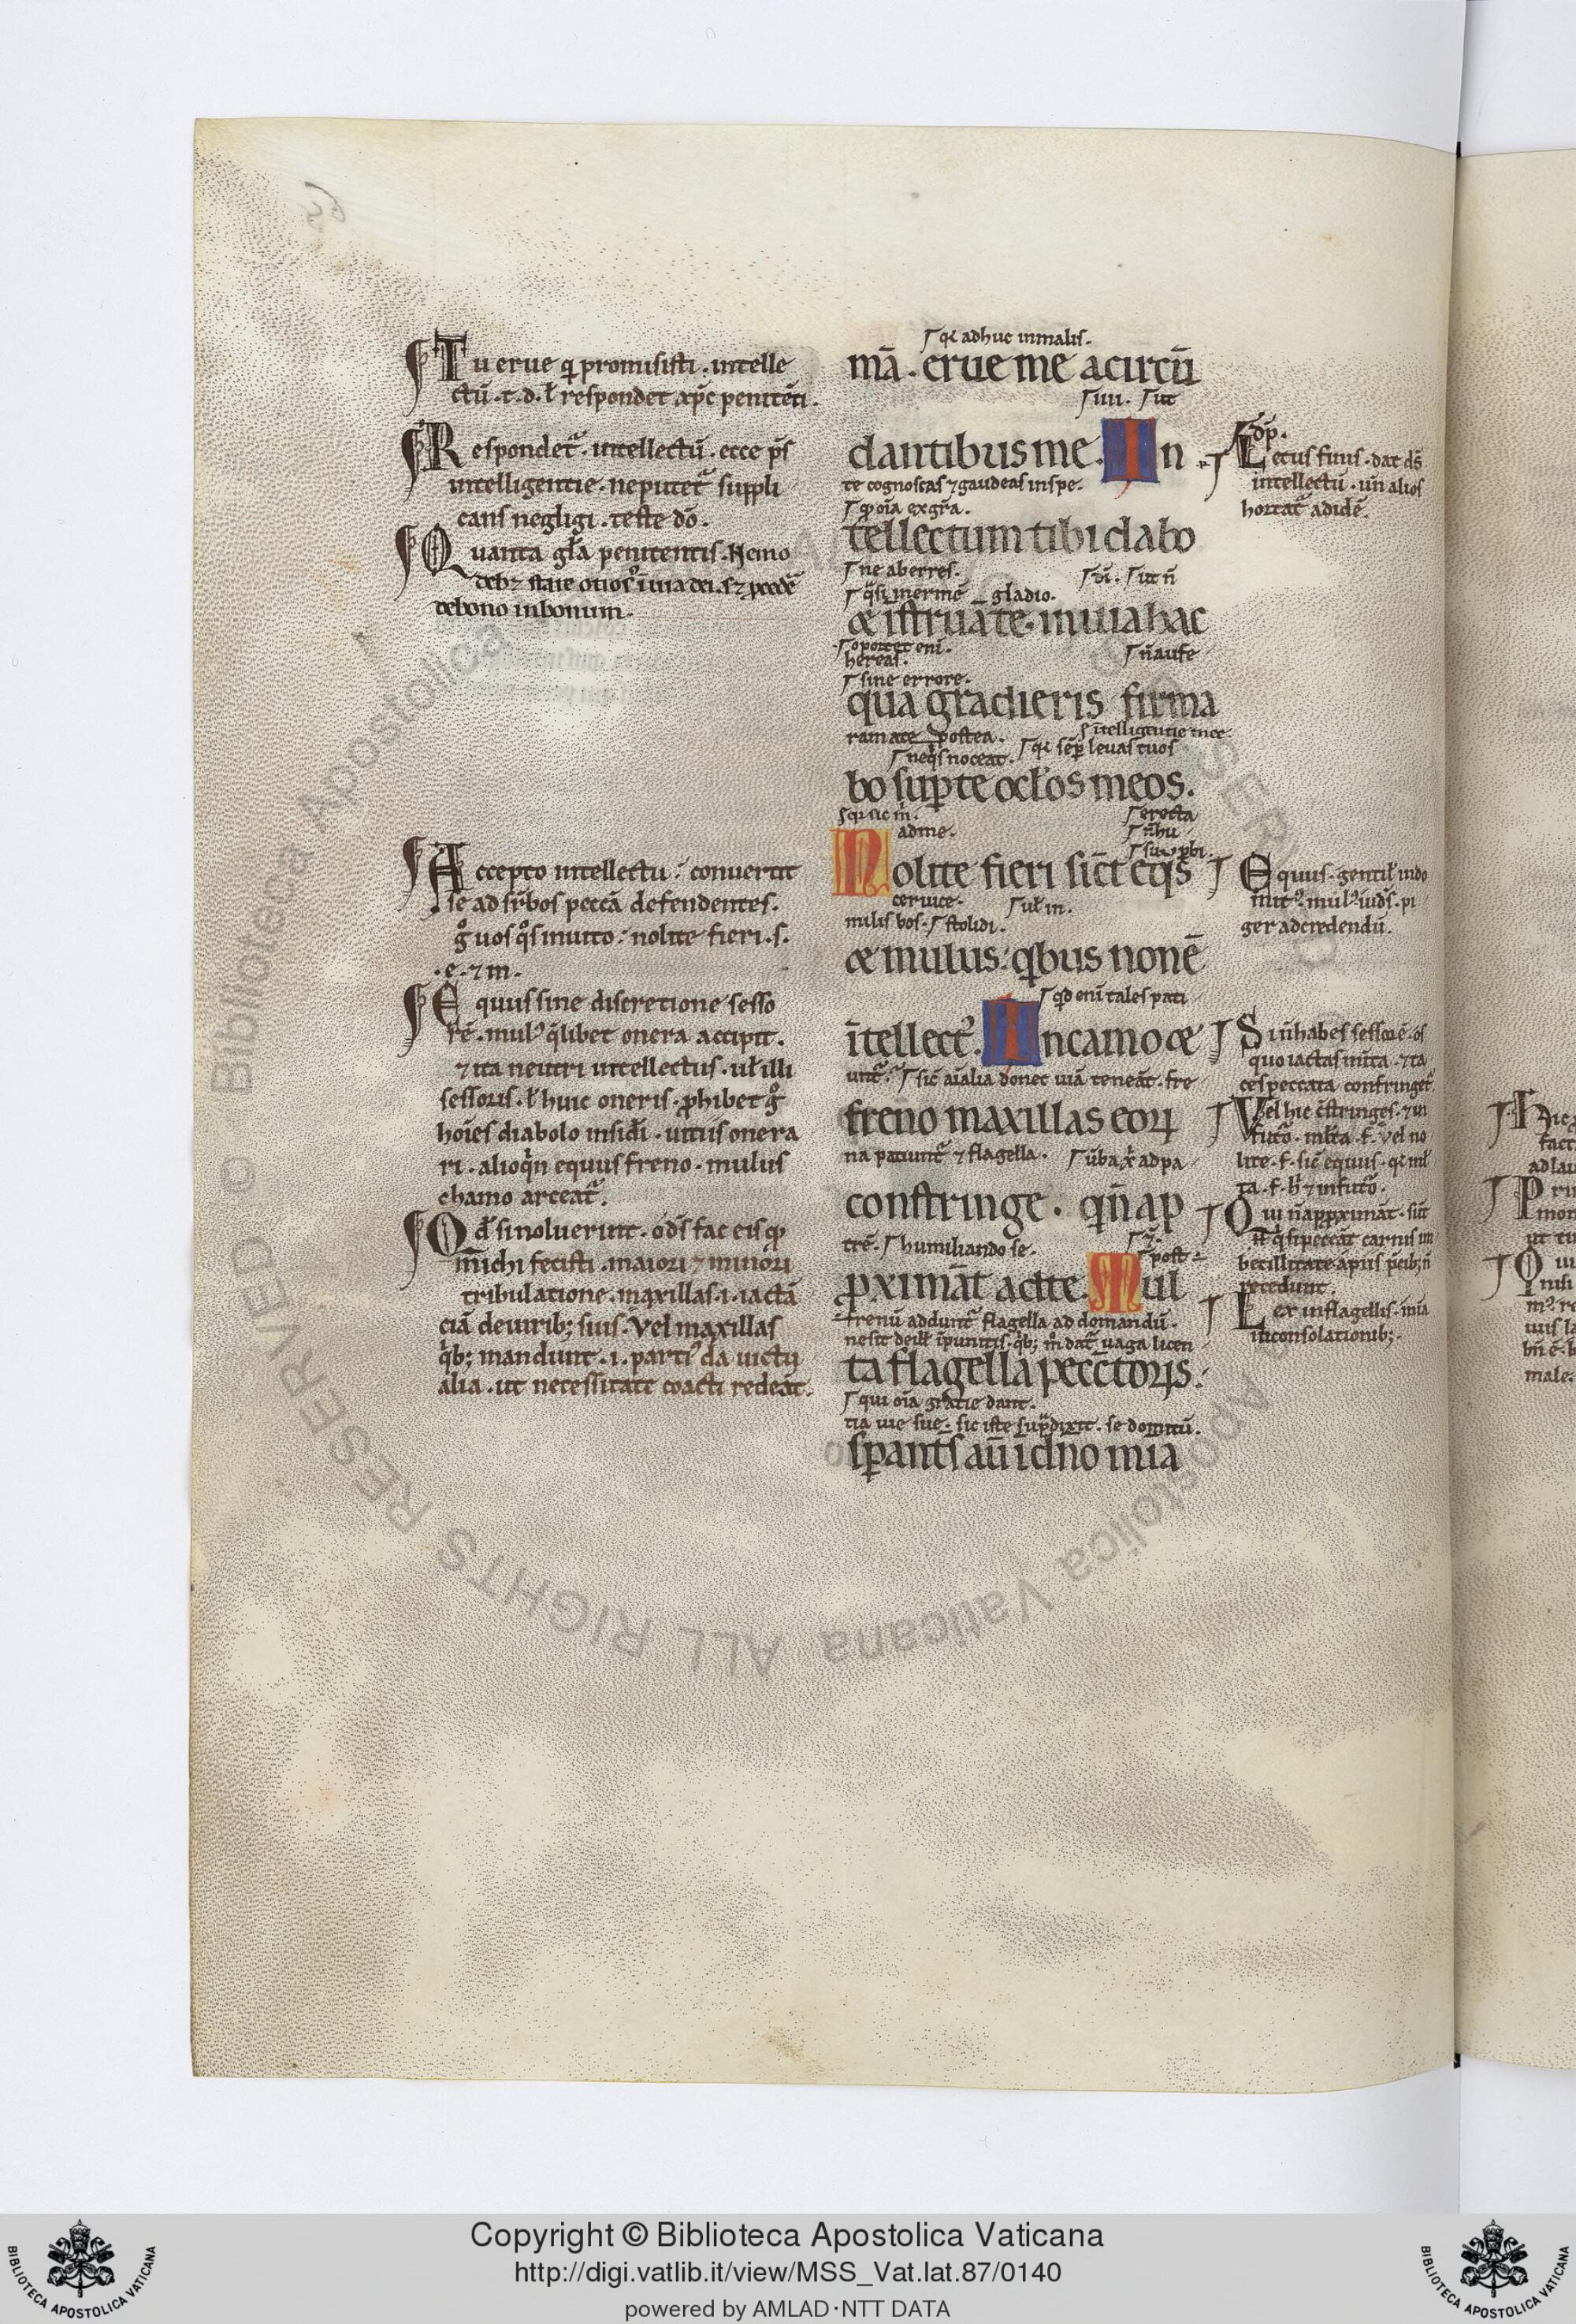 Tu erue q promisisti . intelle
ctū . t . d . ł respondet xp̄c penitēti .
Respondet᷑ . intellectū . ecce p̄s
intelligentie . ne putet᷑ suppli
cans negligi . teste dō .
Quanta gła penitentis . Nemo
deb⁊ stare otios᷒ ī uia dei . s⁊ ꝓcedē
de bono in bonum .
Accepto intellectu : conuertit
se ad sup̄bos peccā defendentes .
gͦ uos qͦs inuito : nolite fieri . s .
. e . ⁊ m .
Equus sine discretione sesso
rē . mul᷒ qͣlibet onera accipit .
⁊ ita neutri intellectus . uł illi
sessoris . ł huic oneris . ꝓhibet gͦ
hoīes diabolo insidī . uitiis onera
ri . alioqͥn equus freno . mulus
chamo arceat᷑ .
Qd̄ si noluerint . o dš fac eis qd̓
michi fecisti . maiori ⁊ minori
tribulatione . maxillas . i . iactā
ciā de uirib; suis . Vel maxillas
qͥb; mandunt . i . parti᷒ da uictu
alia . ut necessitate coacti redeāt .
qꝛ adhuc in malis .
mā . erue me a circū
dantibus me . In
te cognoscas ⁊ gaudeas in spe .
qd̓ oīa ex gr̄a .
tellectum tibi dabo
ne aberres .
qͣsi inermē gladio .
⁊ īstruā te . in uia hac
oportet enī .
hereas .
n̄ aufe
sine errore .
qua gradieris firma
ram a te postea .
s̄ intelligentie mee .
ne qͥs noceat .
qꝛ sēꝑ leuas tuos
bo suꝑ te ocłos meos .
ad me .
erecta
Nolite fieri sič eqͥs
ceruice .
uł in .
milis bos .
stolidi .
⁊ mulus : qͥbus non ē
qd̓ enī tales pati
ītellect᷒ . In camo ⁊
unt᷑ .
sič aīalia donec uiā teneāt . fre
freno maxillas eoꝝ
na patiunt᷑ ⁊ flagella .
constringe . qͥ n̄ ap
trē .
humiliando se .
post
ꝓximāt ad te . Mul
frenū addunt᷑ flagella ad domandū .
ta flagella pecc̄toꝝis .
qui oīa gratie dant .
tia uie sue . sic iste supͣdixit . se domitū .
sꝑants aū ī dn̄o mīa
Letus filius . dat dš
intellectū . uñ alios
hortat᷑ ad idē .
Equus . gentił indo
mit᷒ . mul᷒ iudš . pi
ger ad credendū .
Si n̄ habes sessorē . os
quo iactas mīta . ⁊ ta
ces peccata confringet᷑
Vel hic c̄stringes . ⁊ in
futͦ . młta . f . Vel no
lite . f . sič equus . qꝛ mł
ta . f . h̄ ⁊ in futͦ .
Qui n̄ appximāt . sič
becillitate a piis p̄cib; n̄
recedunt .
Lex in flagellis . mīa
in consolationib; .
Copyright © Biblioteca Apostolica Vaticana
http://digi.vatlib.it/view/MSS_Vat.lat.87/0140
powered by AMLAD·NTT DATA
BIBLIOTECA APOSTOLICA VATICANA
BIBLIOTECA APOSTOLICA VATICANA